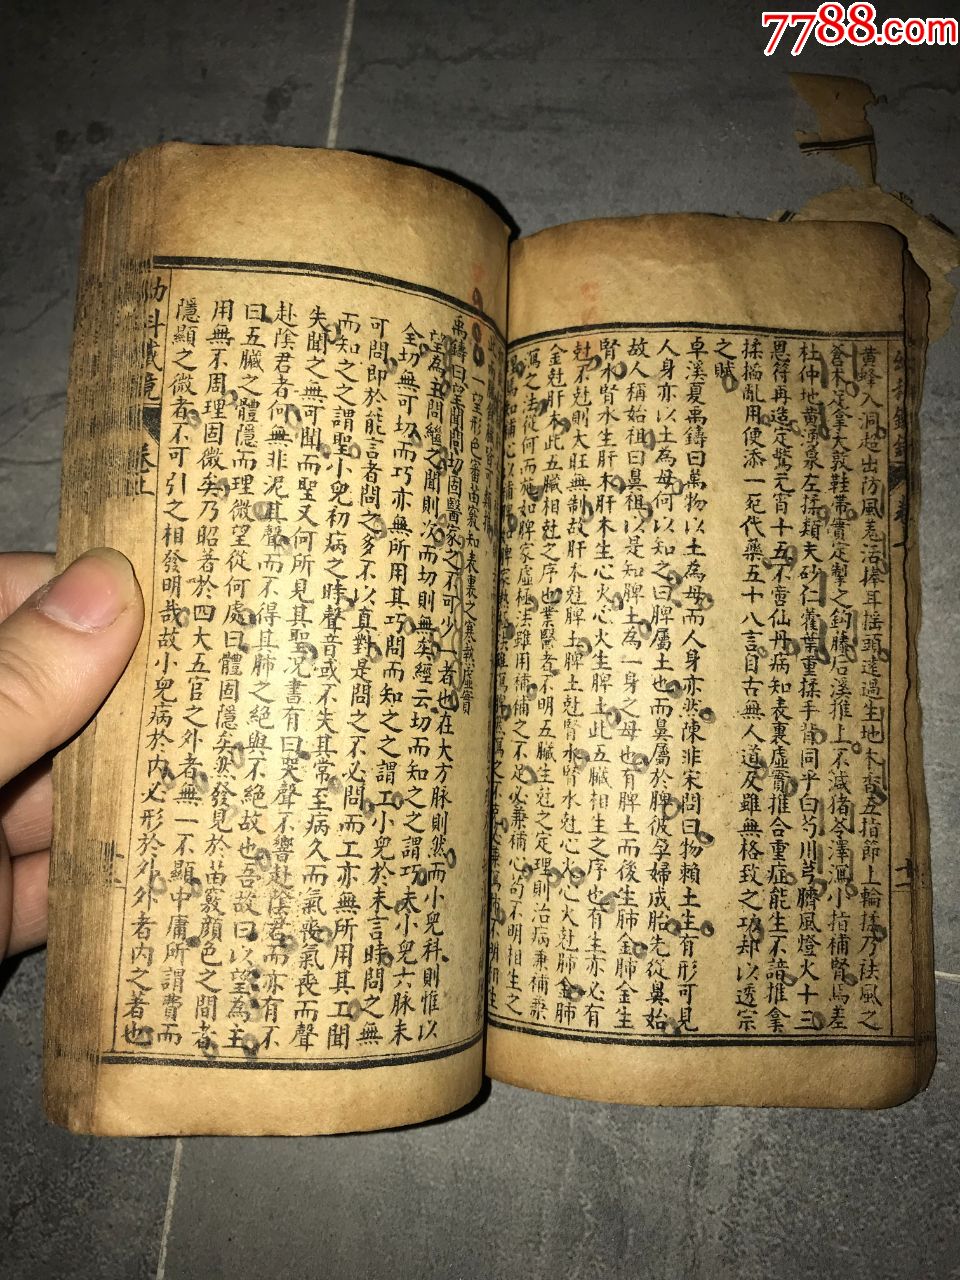 7788.com
黃蜂入洞超出防風羌活捧耳搖頭遠過生地木香五指節上輪揉乃祛風之
蒼木足拿大敦鞋帶實定掣之鈎藤后溪推上不減猪苓澤瀉小指補腎焉差
杜仲地黃湧泉左揉類夫砂仁藿葉重揉手背同乎白芍川芎臍風燈火十三
恩符再造定驚元宵十五不啻仙丹病知表裏虛實推合重症能生不諳推拿
揉搯亂用便添一死代藥五十八言自古無人道及雖無格致之功却以透宗
之賦
卓溪夏禹鑄曰萬物以土為母而人身亦然陳非宋問曰物賴土生有形可見
人身亦以土為母何以知之曰脾屬土也而鼻屬於脾彼孕婦成胎先從鼻始
故人稱始祖曰鼻祖以是知脾土為一身之母也有脾土而後生肺金肺金生
腎水腎水生肝木肝木生心火心火生脾土此五臟相生之序也有生亦必有
尅不尅則大旺無制故肝木尅脾土脾土尅腎水腎水尅心火心火尅肺金肺
金尅肝木此五臟相尅之序也業醫者不明五臟生尅之定理則治病兼補兼
瀉之法從何而施如脾家虛極法雖用補補之不足必兼補心茍不明相生之
禹鑄曰望聞問切固醫家之不可少一者也在大方脉則然而小兒科則惟以
一望形色審苗竅知表裏之寒熱虛實
望為主問繼之聞則次而切則無矣經云切而知之之謂巧夫小兒六脉未
全切無可切而巧亦無所用其巧問而知之之謂工小兒於未言時問之無
可問即於能言者問之多不以真對是問之不必問而工亦無所用其工聞
而知之之謂聖小兒初病之時聲音或不失其常至病久而氣喪氣喪而聲
失聞之無可聞而聖又何所見其聖况書有曰哭聲不響赴陰君而亦有不
赴陰君者何無非泥其聲而不得其肺之絕與不絕故也吾故曰以望為主
曰五臟之體隱而理微望從何處曰體固隱矣然發見於苗竅顏色之間者
用無不周理固微矣乃昭著於四大五官之外者無一不顯中庸所謂費而
隱顯之微者不可引之相發明哉故小兒病於內必形於外外者內之著也
幼科鐵鏡
卷上